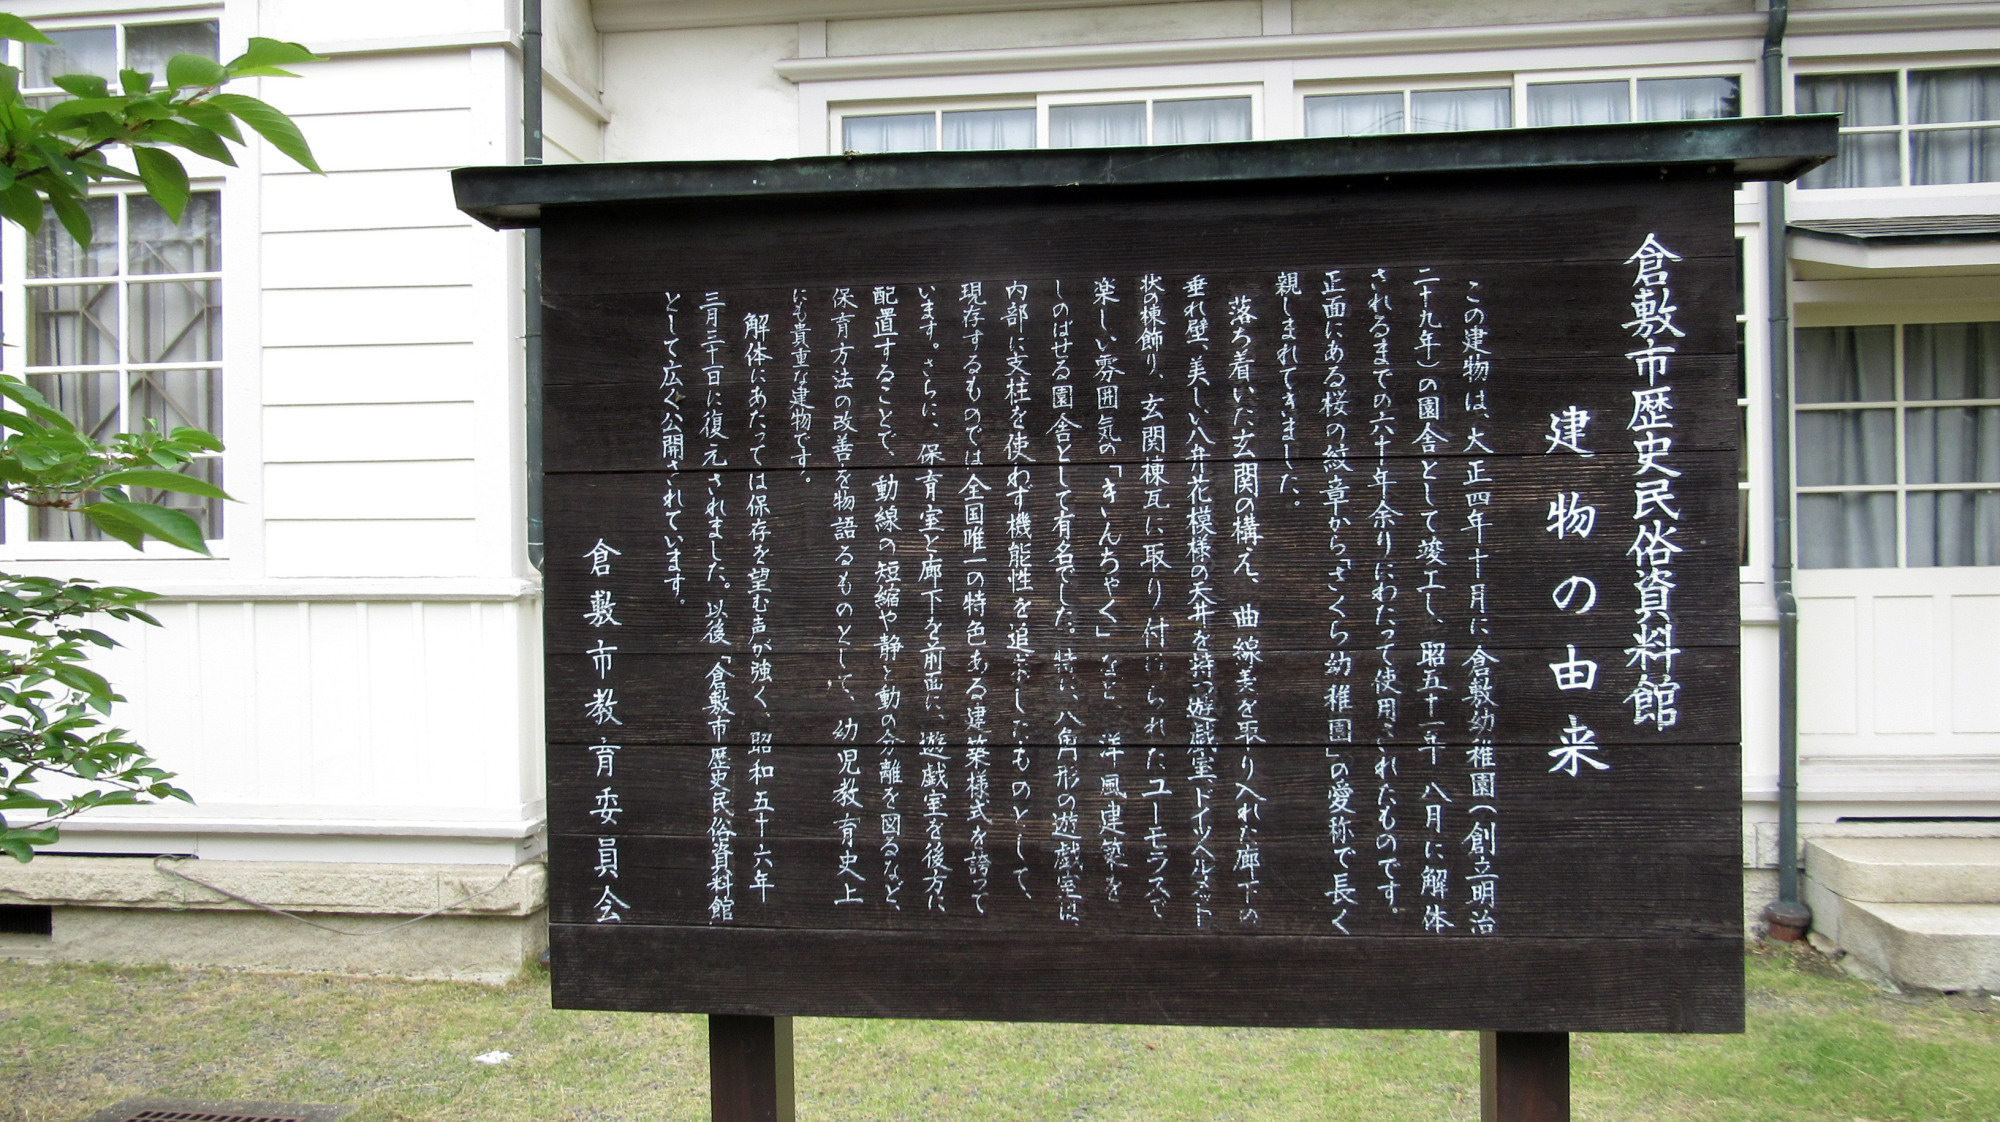 倉敷市歴史民俗資料館
建物の由来
この建物は、大正四年十月に倉敷幼稚園(創立明治
二十九年)の園舎として竣工し、昭五十一年八月に解体
されるまでの六十年余りにわたって使用されたものです。
正面にある桜の紋章から「さくら幼稚園」の愛称で長く
親しまれてきました。
落ち着いた玄関の構え、曲線美を取り入れた廊下の
垂れ壁、美しい八弁花模様の天井を持つ遊戯室、ドイツヘルメット
状の棟飾り、玄関棟瓦に取り付けられたユーモラスで
楽しい雰囲気の「きんちゃく」など、洋風建築を
しのばせる園舎として有名でした。特に、八角形の遊戯室は、
内部に支柱を使わず機能性を追求したものとして、
現存するものでは全国唯一の特色ある建築様式を誇って
います。さらに、保育室と廊下を前面に、遊戯室を後方に
配置することで、動線の短縮や静と動の分離を図るなど、
保育方法の改善を物語るものとして、幼児教育史上
にも貴重な建物です。
解体にあたっては保存を望む声が強く、昭和五十六年
三月三十一日に復元されました。以後「倉敷市歴史民俗資料館」
として広く公開されています。
倉敷市教育委員会